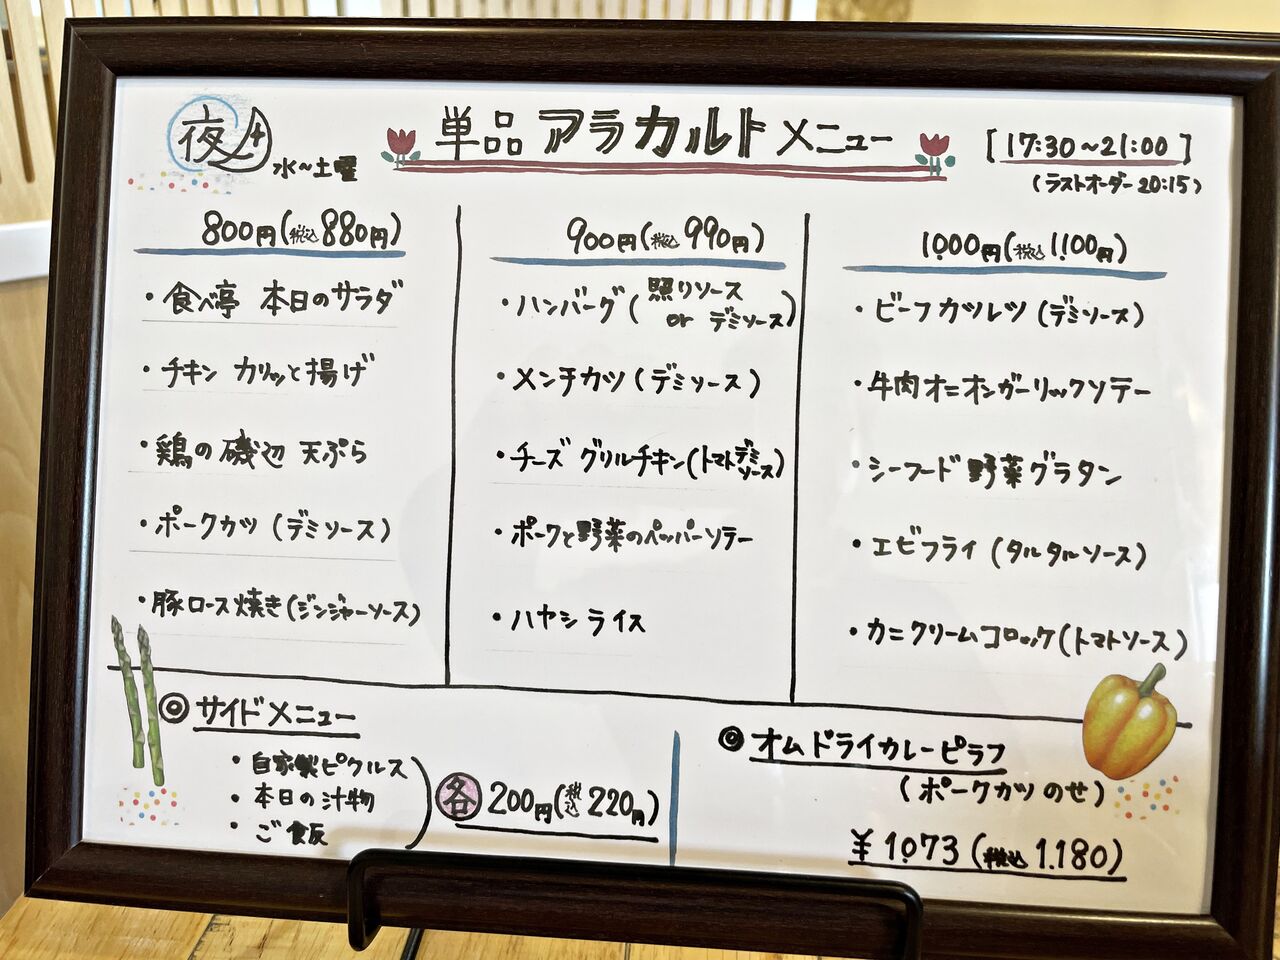 夜
水～土曜
単品 アラカルトメニュー
[17:30～21:00]
(ラストオーダー20:15)
800円(税込880円)
・食べ亭 本日のサラダ
・チキン カリッと揚げ
・鶏の磯辺 天ぷら
・ポークカツ(デミソース)
・豚ロース焼き(ジンジャーソース)
900円(税込990円)
・ハンバーグ(照りソース
or デミソース)
・メンチカツ(デミソース)
・チーズ グリルチキン(トマトデミソース)
・ポークと野菜のペッパーソテー
・ハヤシライス
1,000円(税込1,100円)
・ビーフカツレツ(デミソース)
・牛肉オニオンガーリックソテー
・シーフード野菜グラタン
・エビフライ(タルタルソース)
・カニクリームコロッケ(トマトソース)
◎サイドメニュー
・自家製ピクルス
・本日の汁物
・ご飯
各 200円(税込220円)
◎オムドライカレーピラフ
(ポークカツのせ)
¥1,073(税込1,180)